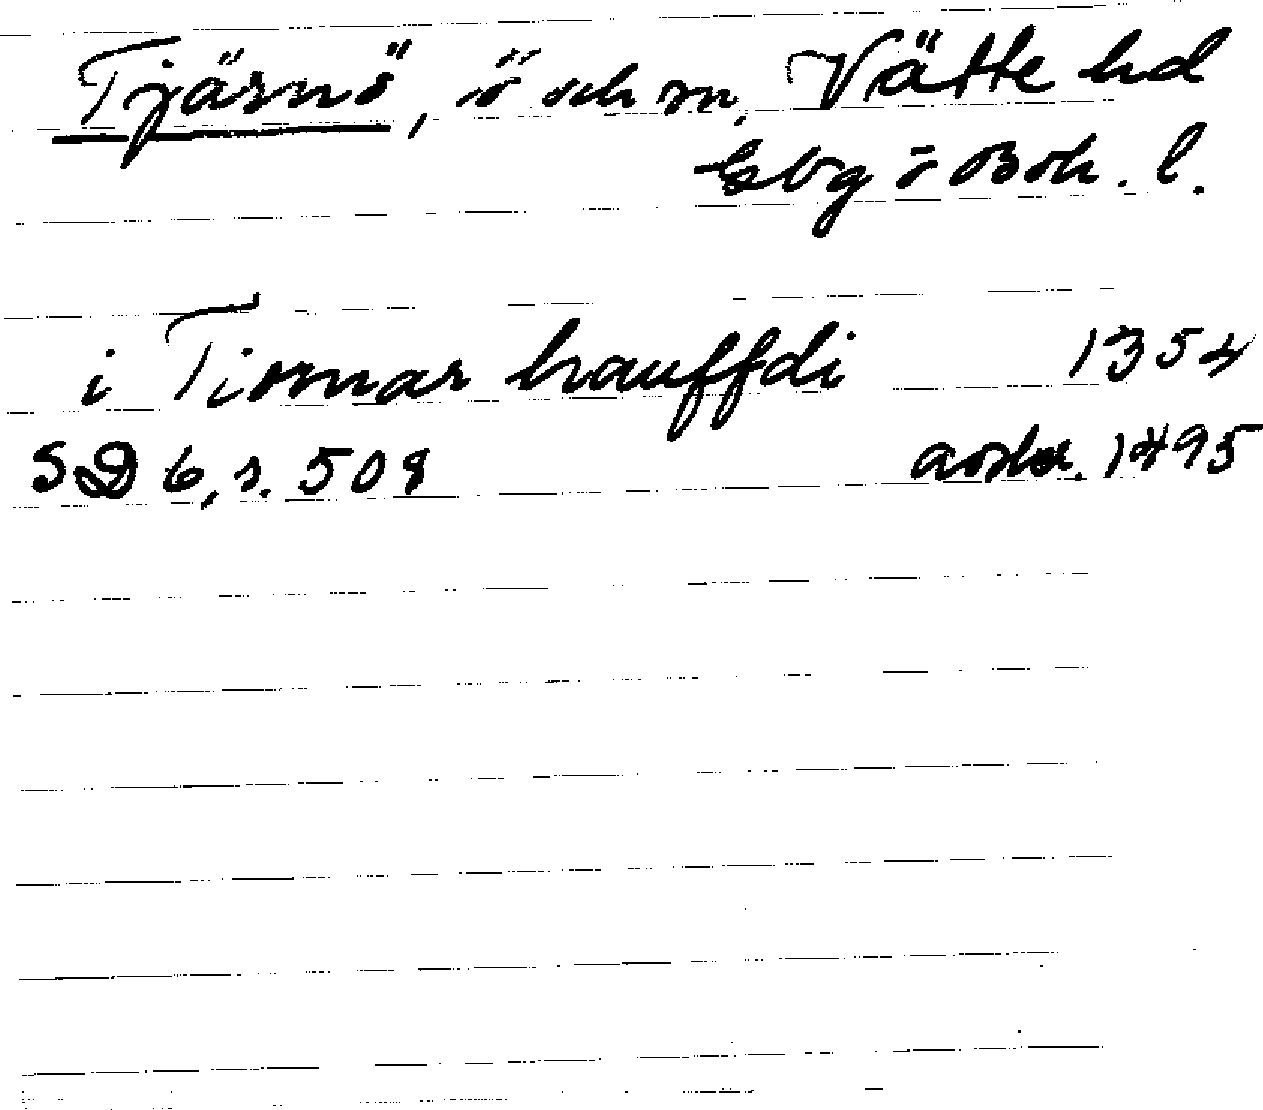 Tjärnö, ö och sn, Vätte hd
Gbg o Boh. l.
i Tiornar hauffdi 1354
SD 6, s. 508 avskr. 1495